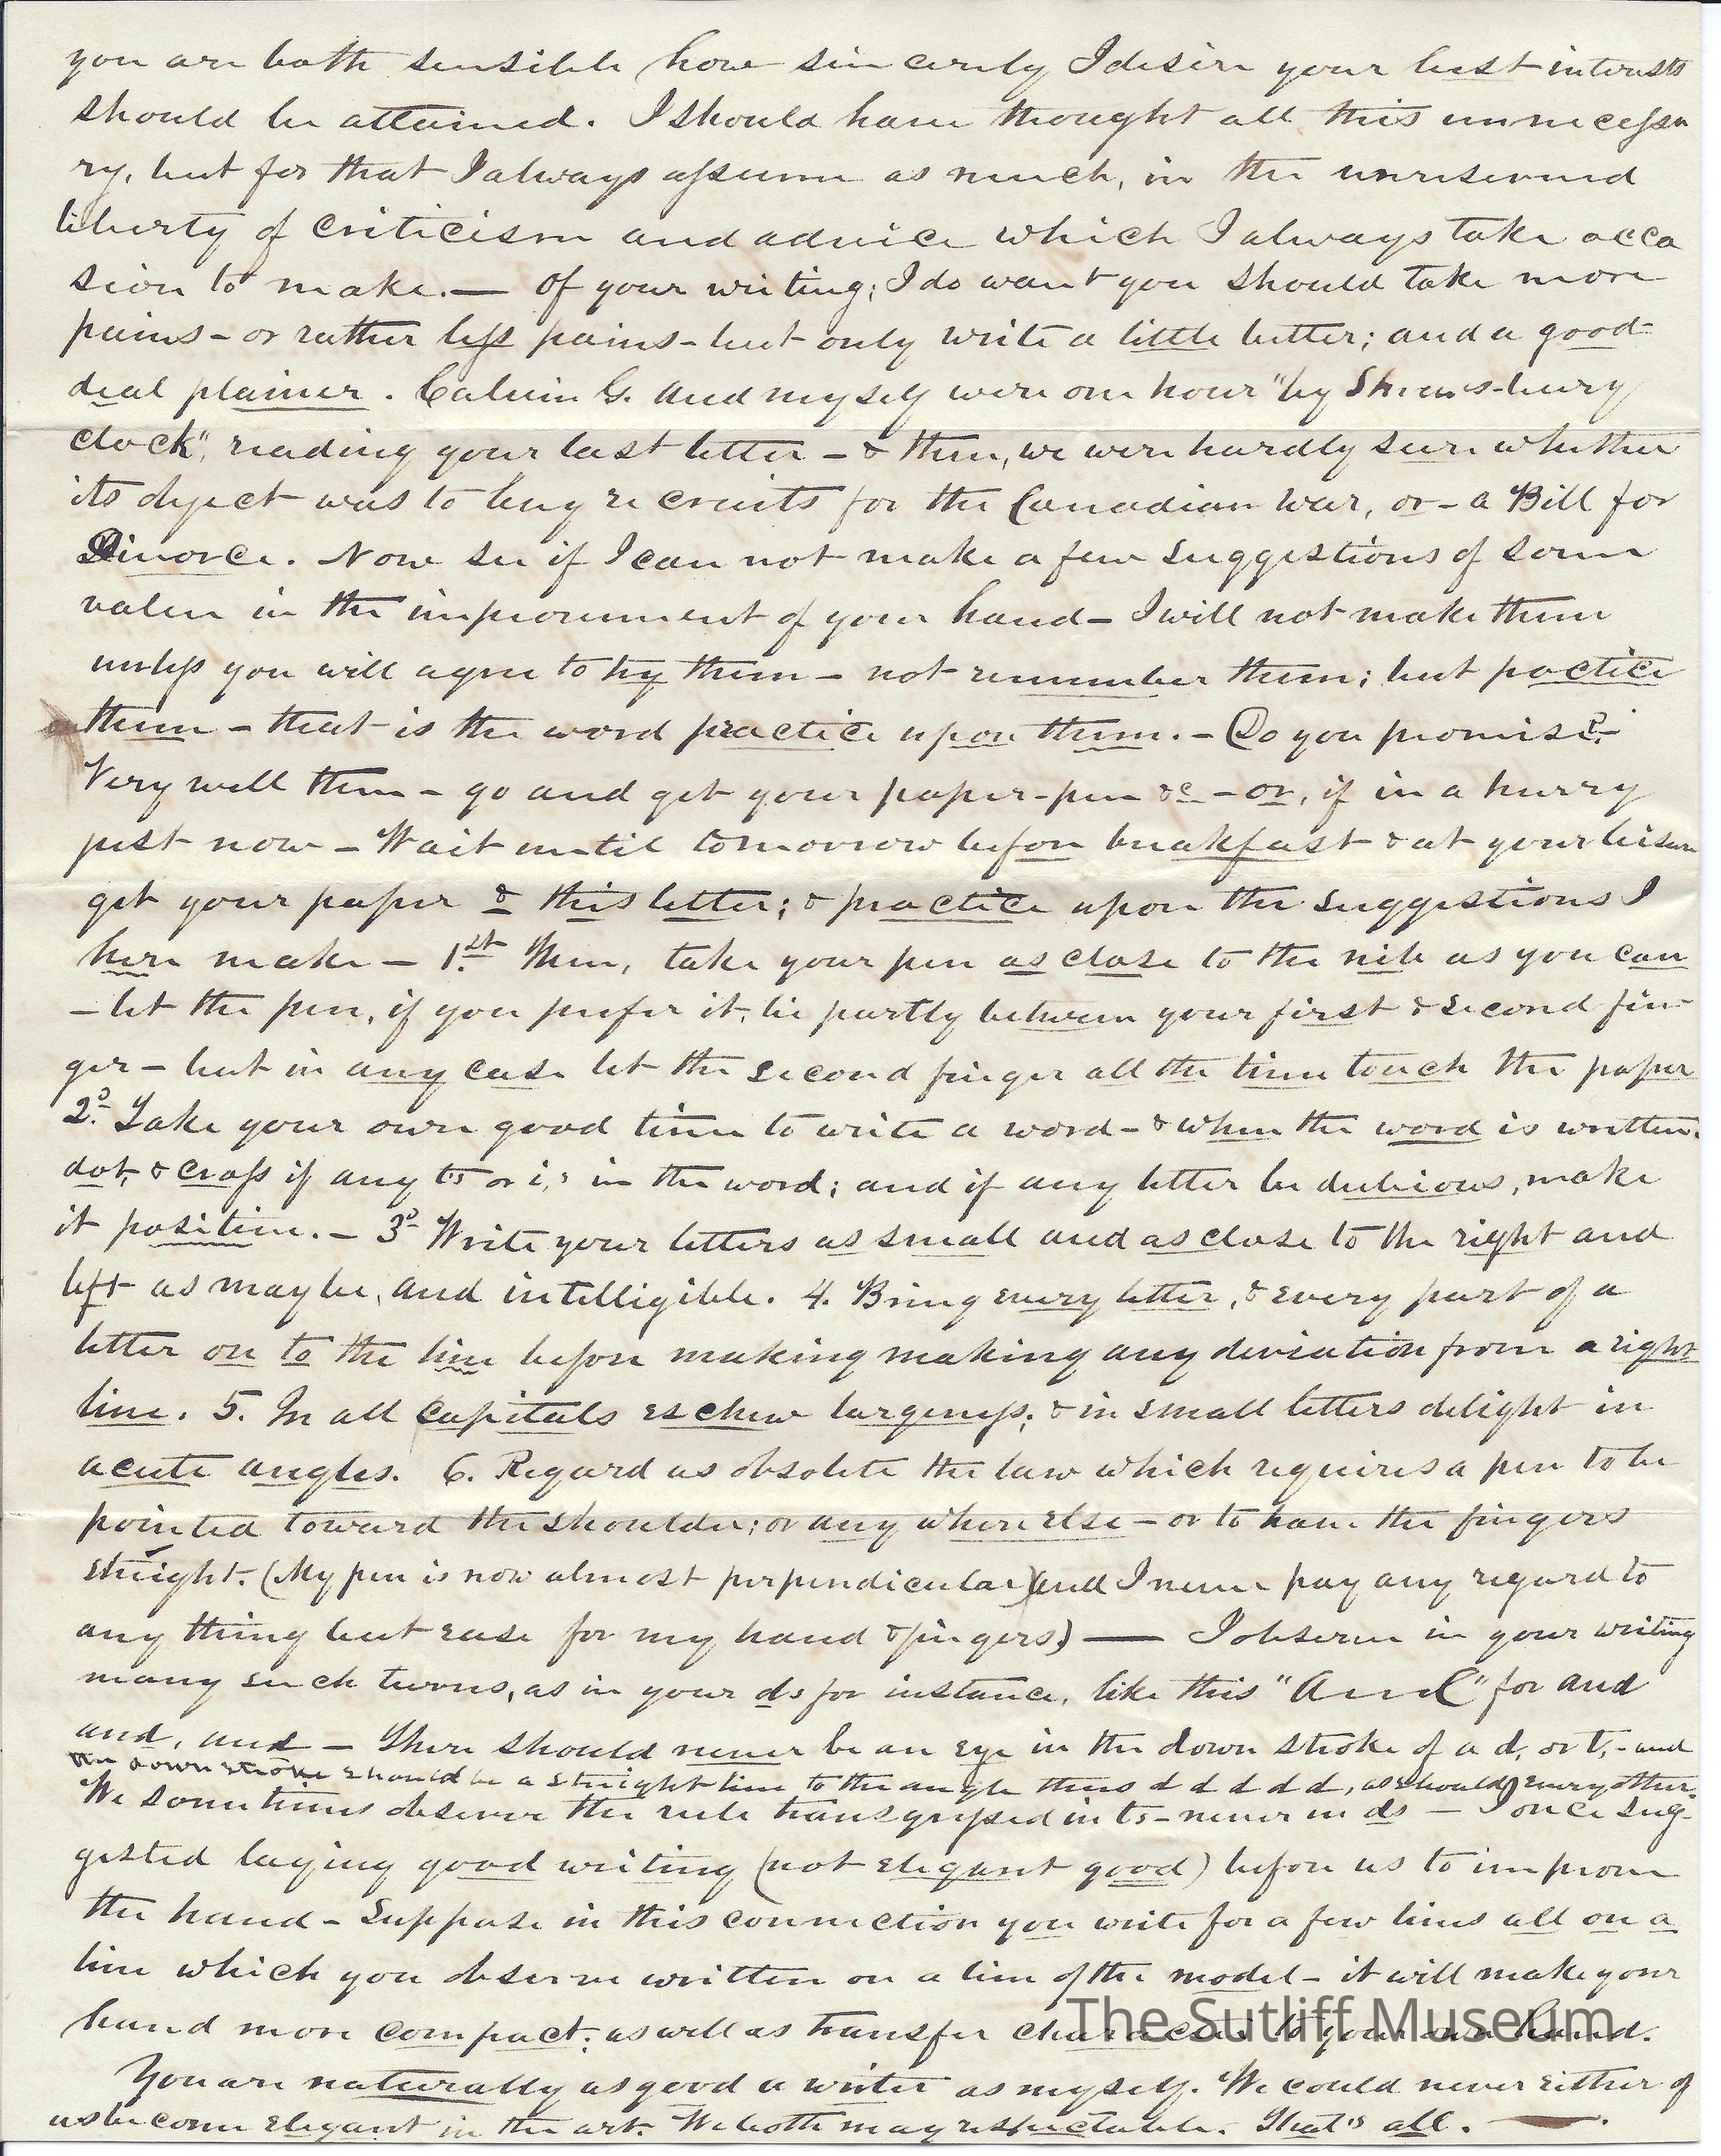 you are both sensible how sincerely I desire your best interests
should be attained. I should have thought all this unnecessa
ry, but for that I always assume as much, in the unreserved
liberty of criticism and advice which I always take occa
sion to make.— Of your writing; I do want you should take more
pains - or rather less pains - but only write a little better; and a good
deal plainer. Calvin G. and myself were one hour "by Shrewsbury
clock", reading your last letter - & then, we were hardly sure whether
its object was to buy recruits for the Canadian War, or - a Bill for
Divorce. Now see if I can not make a few suggestions of some
value in the improvement of your hand - I will not make them
unless you will agree to try them - not remember them; but practice
them - that is the word practice upon them. - Do you promise?-
Very well then - go and get your paper-pen &c - or, if in a hurry
just now - Wait until tomorrow before breakfast & at your leisure
get your paper & this letter; & practice upon the suggestions I
here make - 1st. Then, take your pen as close to the nib as you can
- let the pen, if you prefer it, lie partly between your first & second fin-
ger - but in any case let the second finger all the time touch the paper
2d. Take your own good time to write a word - & when the word is written.
dot, & cross if any ts or i,s in the word; and if any letter be dubious, make
it positive. - 3d Write your letters as small and as close to the right and
left as may be, and intelligible. 4. Bring every letter, & every part of a
letter on to the line before making making any deviation from a right
line. 5. In all capitals eschew largeness; & in small letters delight in
acute angles. 6. Regard as obsolete the law which requires a pen to be
pointed toward the shoulder; or any where else - or to have the fingers
straight. (My pen is now almost perpendicular) and I never pay any regard to
any thing but ease for my hand & fingers) — I observe in your writing
many such turns, as in your ds for instance, like this "and" for and
and, and - There should never be an eye in the down stroke of a d, or t, - and
the down stroke should be a straight line to the angle thus d d d d d, as should every other.
We sometimes observe the rule transgressed in ts - never in ds - I once sug-
gested laying good writing (not elegant good) before us to improve
the hand - Suppose in this connection you write for a few lines all on a
line which you observe written on a line of the model - it will make your
hand more compact; as well as transfer character to your own hand.
The Sutliff Museum
You are naturally as good a writer as myself. We could never either of
us become elegant in the art. We both may respectable. That's all.